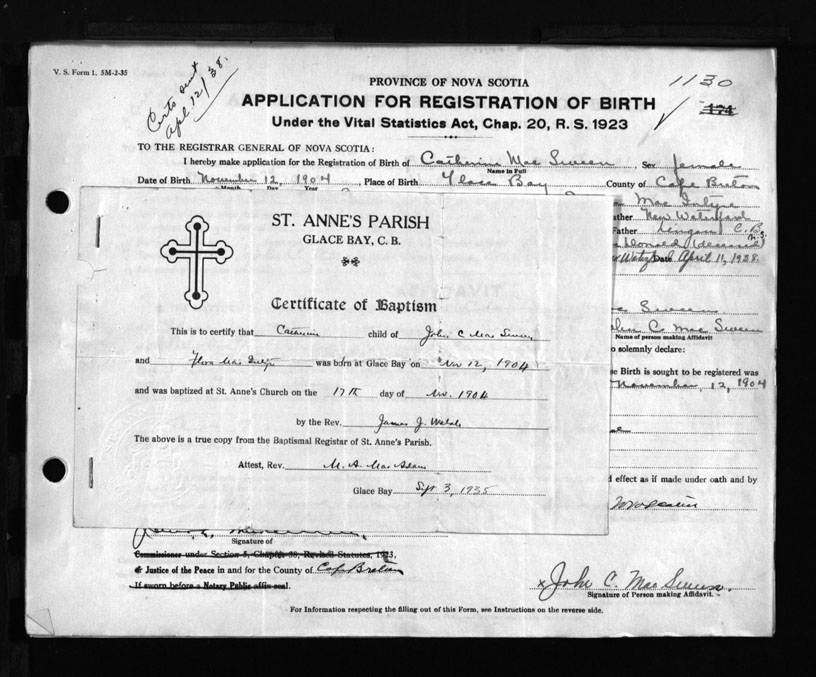 V. S. Form 1. 5M-2-35
Certs sent
Apl 12/38.
1130
174
PROVINCE OF NOVA SCOTIA
APPLICATION FOR REGISTRATION OF BIRTH
Under the Vital Statistics Act, Chap. 20, R. S. 1923
TO THE REGISTRAR GENERAL OF NOVA SCOTIA:
I hereby make application for the Registration of Birth of Catherine Mac Sween, Sex female
Name in Full
Date of Birth November 12, 1904, Place of Birth Glace Bay County of Cape Breton
Month Day Year
Mac Intyre
ather New Waterford
Father Lingan C. B.
Donald (deceased)
Date April 11, 1938.
ST. ANNE'S PARISH
GLACE BAY, C. B.
Certificate of Baptism
This is to certify that Catherine child of John C Mac Sween
and Flora Mac Intyre was born at Glace Bay on Nov 12, 1904
and was baptized at St. Anne's Church on the 17th day of Nov. 1904
by the Rev. James J. Walsh
The above is a true copy from the Baptismal Registar of St. Anne's Parish.
Attest, Rev. M. A. Mac Adam
Glace Bay Sept 3, 1935
Sween
C. Mac Sween
Name of person making Affidavit
o solemnly declare:
e Birth is sought to be registered was
November, 12, 1904
d effect as if made under oath and by
Signature of
Commissioner under Section 5, Chapter 38, Revised Statutes, 1923,
or Justice of the Peace in and for the County of Cape Breton
If sworn before a Notary Public affix seal.
x John C. Mac Sween.
Signature of Person making Affidavit.
For Information respecting the filling out of this Form, see Instructions on the reverse side.